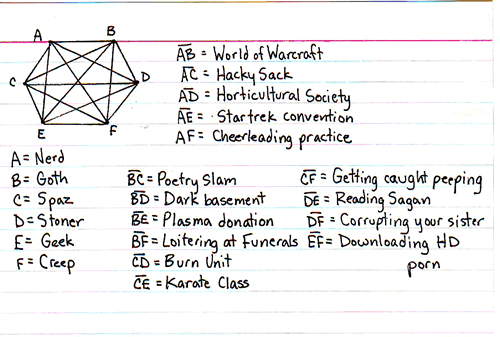 A B
C D
E F
A̅B̅ = World of Warcraft
A̅C̅ = Hacky Sack
A̅D̅ = Horticultural Society
A̅E̅ = Startrek convention
AF = Cheerleading practice
A = Nerd
B = Goth
C = Spaz
D = Stoner
E = Geek
F = Creep
B̅C̅ = Poetry Slam
B̅D̅ = Dark basement
B̅E̅ = Plasma donation
B̅F̅ = Loitering at Funerals
C̅D̅ = Burn Unit
C̅E̅ = Karate Class
C̅F̅ = Getting caught peeping
D̅E̅ = Reading Sagan
D̅F̅ = Corrupting your sister
E̅F̅ = Downloading HD
porn